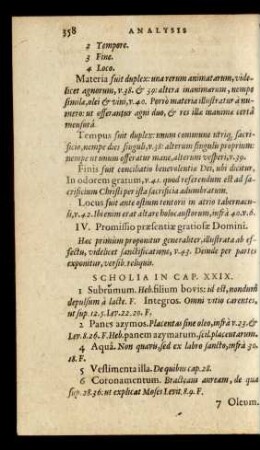 358 ANALYSIS
2 Tempore.
3 Fine.
4 Loco.
Materia fuit duplex: una rerum animatarum, vide-
licet agnorum, v. 38. & 39: altera inanimarum, nempe
similæ, olei & vini, v. 40. Porrò materia illustratur à nu-
mero: ut offerantur agni duo, & res illa inanima certâ
mensurâ.
Tempus fuit duplex: unum commune utriq, sacrifi-
cio, nempe dies singuli, v. 38: alterum singulis proprium:
nempe ut unum offeratur mane, alterum vesperi, v. 39.
Finis fuit conciliatio benevolentiæ Dei, ubi dicitur,
In odorem gratum, v. 41. quod referendum est ad sa-
crificium Christi per ista sacrificia adumbratum.
Locus fuit ante ostium tentorii in atrio tabernacu-
li, v. 42. Ibi enim erat altare holocaustorum, infrà 40. v. 6.
IV. Promissio præsentiæ gratiosæ Domini.
Hæc primùm proponitur generaliter, illustrata ab ef-
fectu, videlicet sanctificatione, v. 43. Deinde per partes
exponitur, versib. reliquis.
SCHOLIA IN CAP. XXIX.
1 Subrumum. Heb. filium bovis: id est, nondum
depulsum à lacte. F. Integros. Omni vitio carentes,
ut sup. 12. 5. Lev. 22. 20. F.
2 Panes azymos. Placentas sine oleo, infrà v. 23. &
Lev. 8. 26. F. Heb. panem azymarum, scil. placentarum.
4 Aquâ. Non quavis, sed ex labro sancto, infrà 30.
18. F.
5 Vestimenta illa. De quibus cap. 28.
6 Coronamentum. Bracteam auream, de qua
sup. 28. 36. ut explicat Moses Levit. 8. 9. F.
7 Oleum.